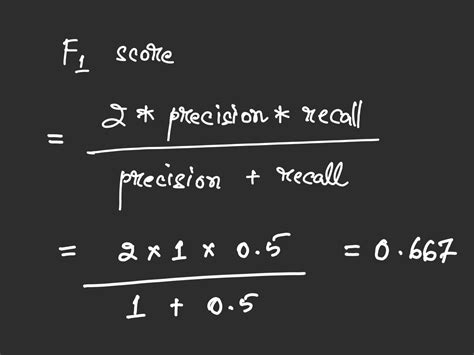 F1 score
= 2 * precision * recall
precision + recall
= 2 * 1 * 0.5 = 0.667
1 + 0.5